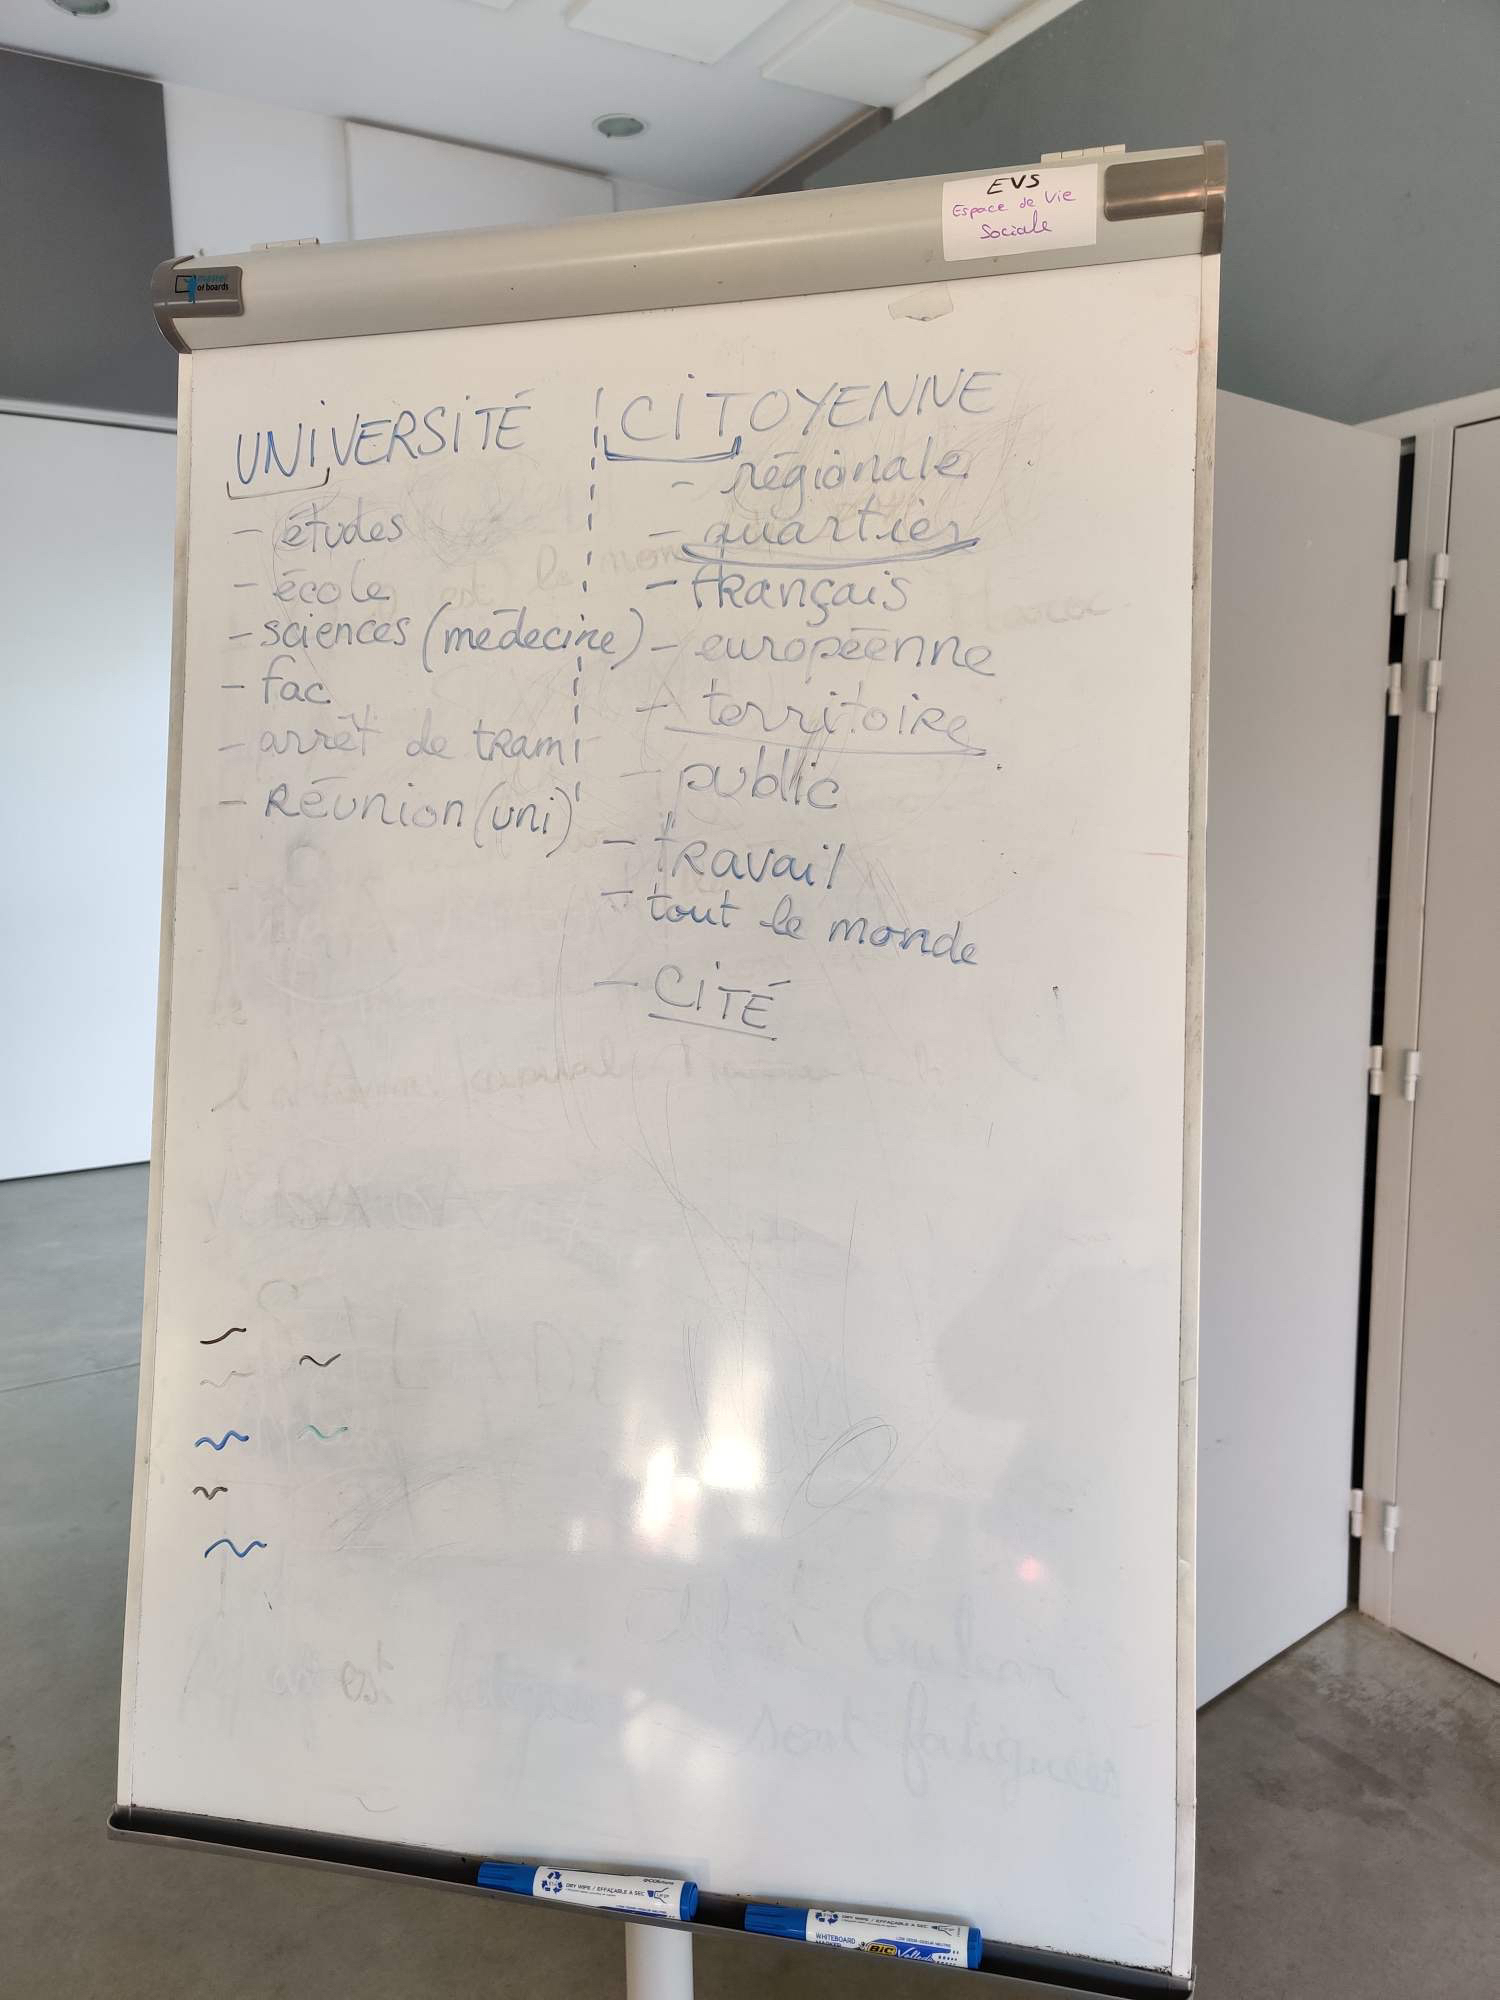 EVS
Espace de Vie
Sociale
master
of boards
UNIVERSITÉ
- études
- école
- sciences (médecine)
- fac
- arrêt de tram
- Réunion (uni)
CITOYENNE
- régionale
- quartier
- français
- européenne
- territoire
- public
- travail
- tout le monde
- CITÉ
sont fatigués
DRY WIPE / EFFAÇABLE A SEC
DRY WIPE / EFFAÇABLE A SEC
WHITEBOARD
MARKER
BIC
Velleda